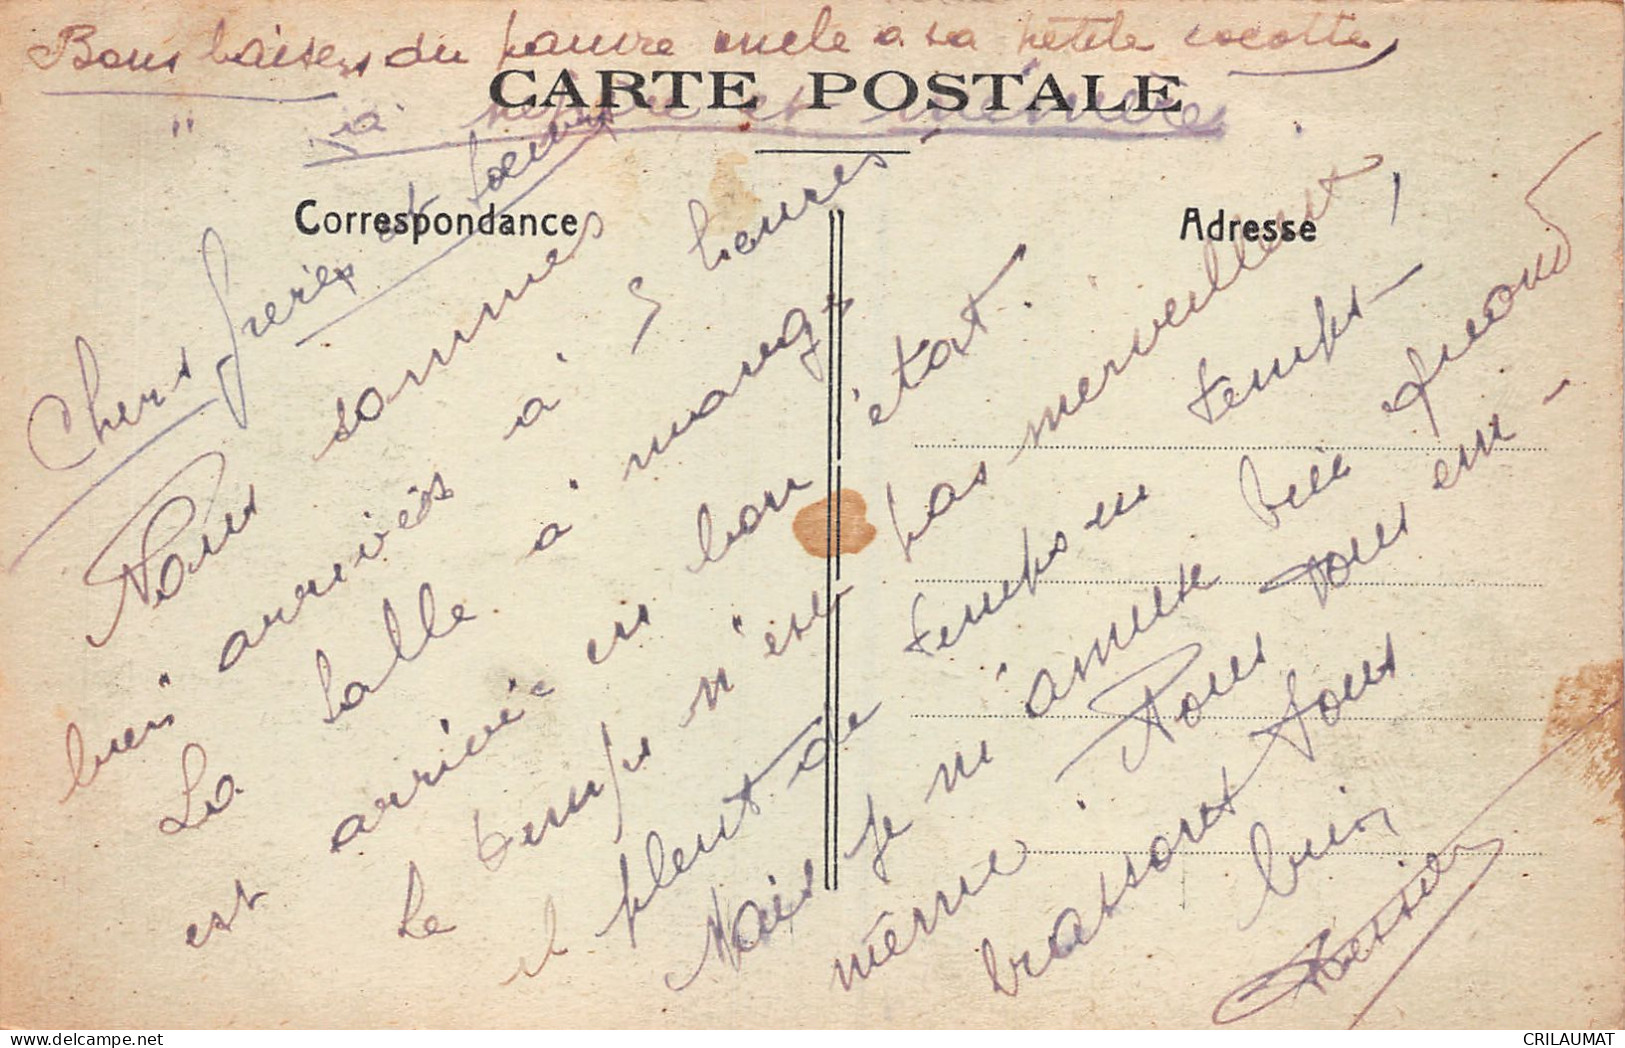 Bons baisers du pauvre oncle a sa petite cocotte,
CARTE POSTALE
" à népère et mémère
Correspondance
Adresse
Chers frères et soeurs
Nous sommes
bien arrivés à 5 heures
La salle à mange
est arrivée en bon état.
Le temps n'est pas merveilleux,
il pleut de temps en temps -
Mais je m'amuse bien quand
même. Nous vous em-
brassons tous
bien
CRILAUMAT